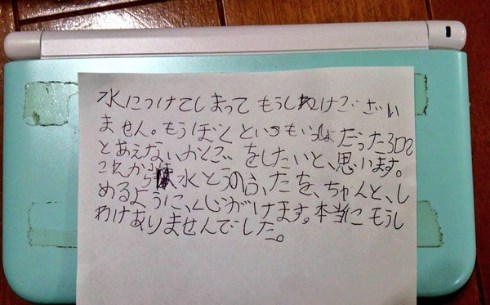 水につけてしまってもうしわけござい
ません。もうぼくといつもいっしょだった3DS
とあえないかくごをしたいと、思います。
これからは水とうのふたを、ちゃんと、し
めるように、心がけます。本当にもうし
わけありませんでした。